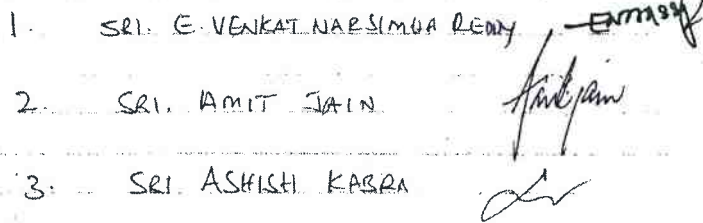 1. SRI. E. VENKAT NARSIMHA REDDY
2. SRI. AMIT JAIN Amit Jain
3. SRI ASHISH KABRA